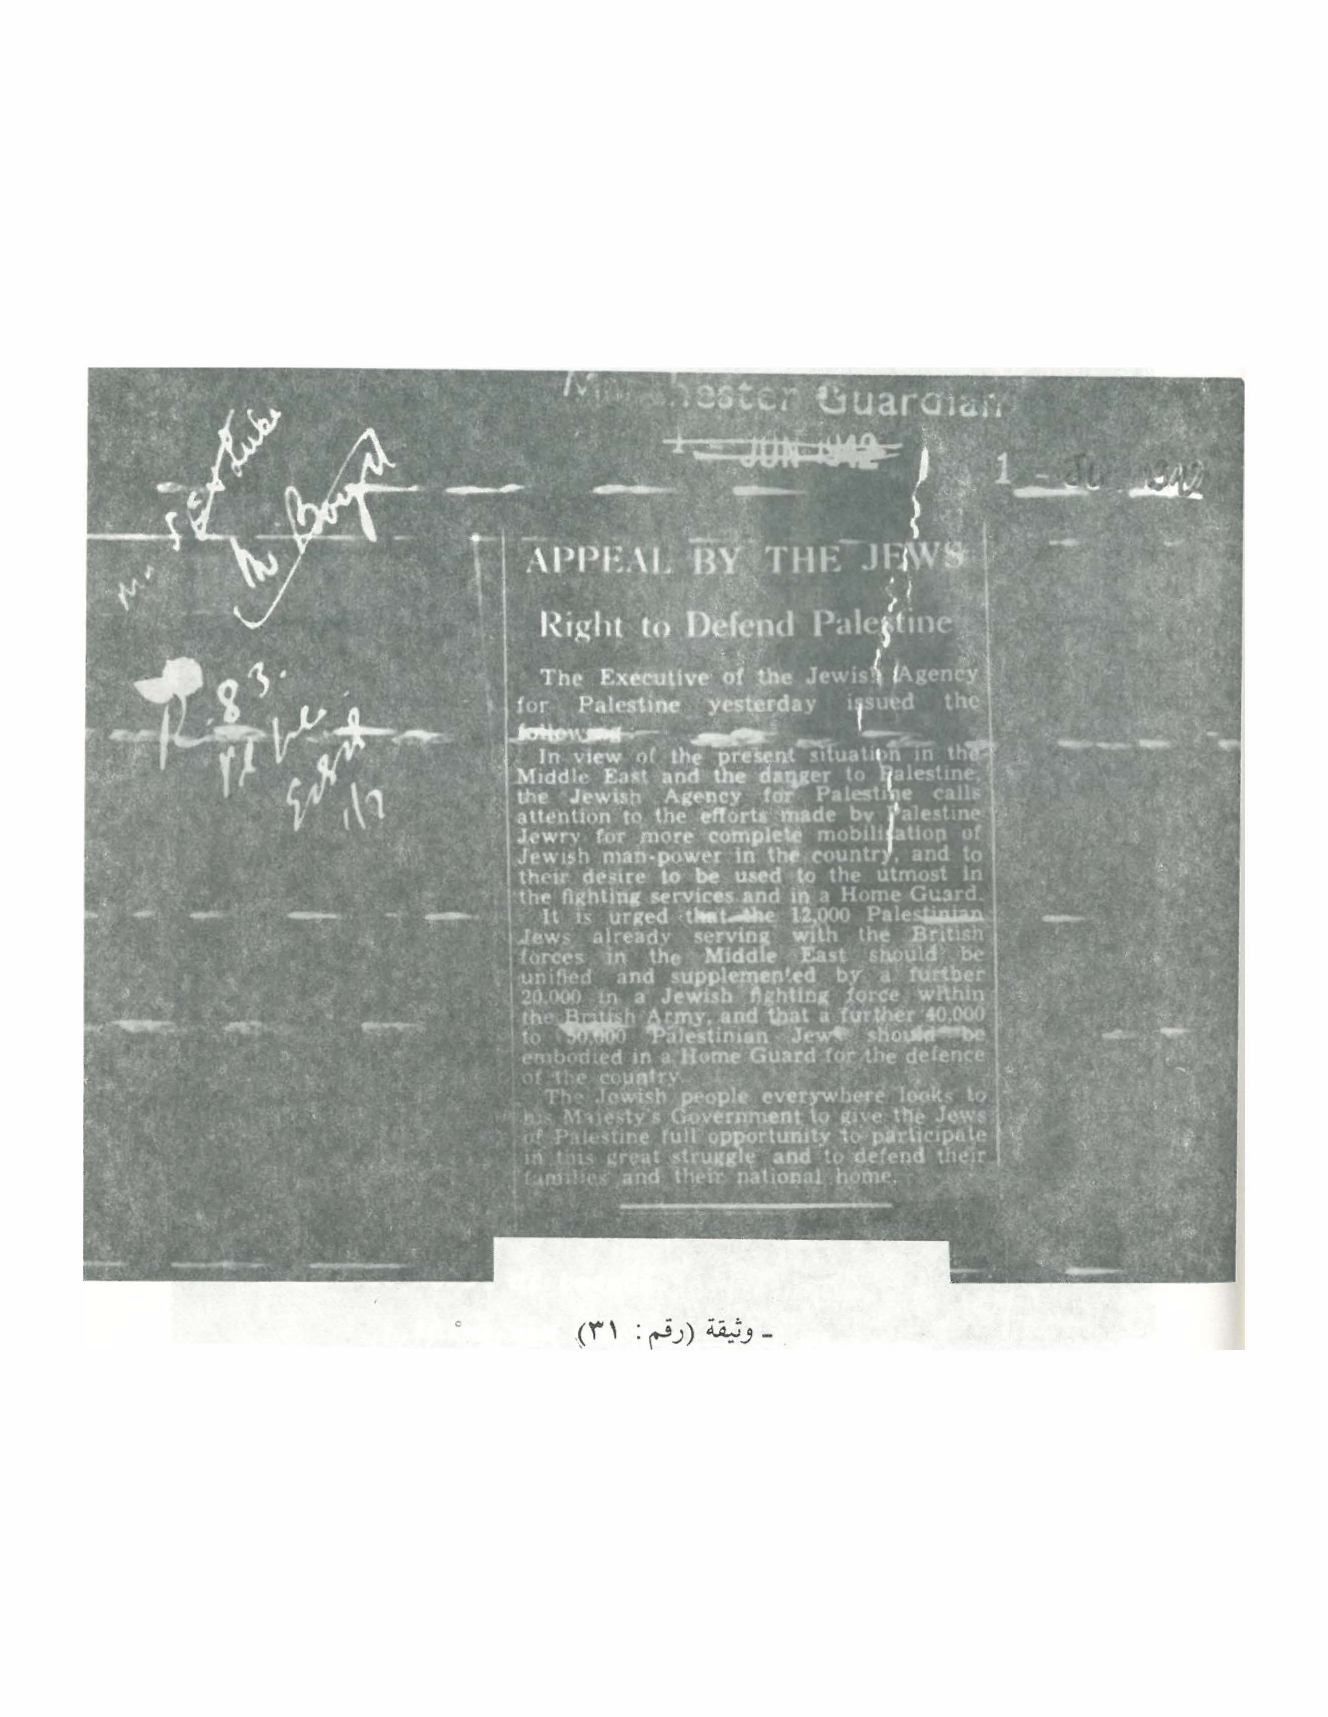 Manchester Guardian
1 - JUN 1942
1 - JU 1942
APPEAL BY THE JEWS
Right to Defend Palestine
The Executive of the Jewish Agency
for Palestine yesterday issued the
following
In view of the present situation in the
Middle East and the danger to Palestine,
the Jewish Agency for Palestine calls
attention to the efforts made by Palestine
Jewry for more complete mobilisation of
Jewish man-power in the country, and to
their desire to be used to the utmost in
the fighting services and in a Home Guard.
It is urged that the 12,000 Palestinian
Jews already serving with the British
forces in the Middle East should be
unified and supplemented by a further
20,000 in a Jewish fighting force within
the British Army, and that a further 40,000
to 50,000 Palestinian Jews should be
embodied in a Home Guard for the defence
of the country.
The Jewish people everywhere looks to
his Majesty's Government to give the Jews
of Palestine full opportunity to participate
in this great struggle and to defend their
families and their national home.
Luke
R. 83.
1/7
ـ وثيقة (رقم : ٣١)